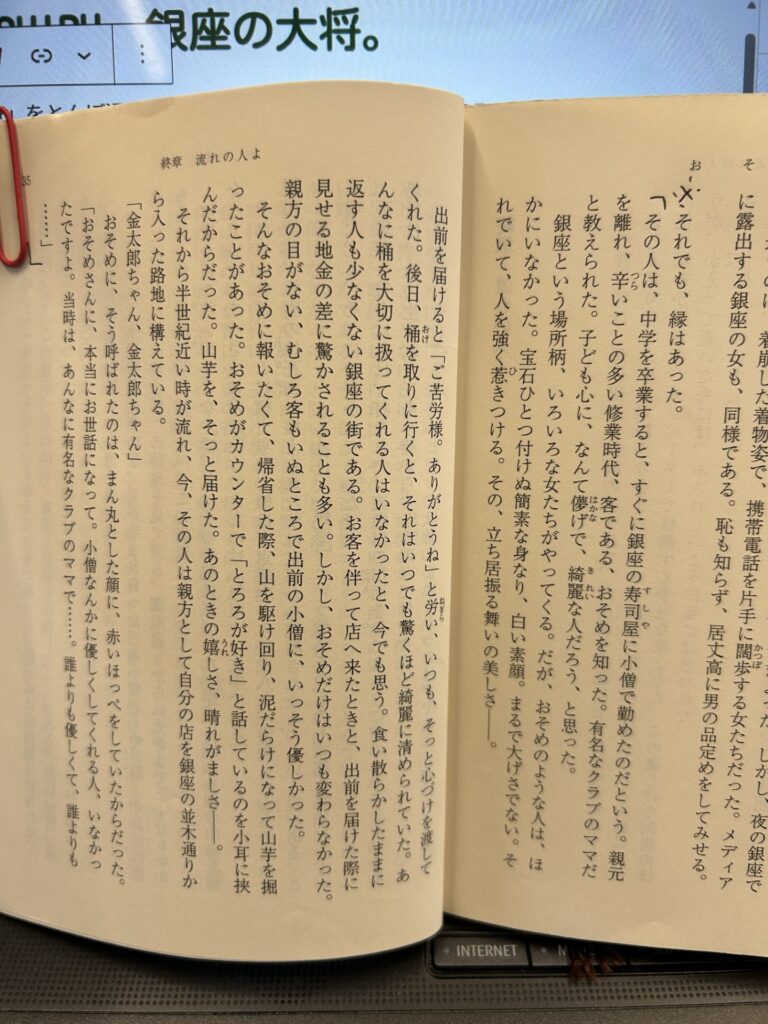 銀座の大将。
をとんぼ
そ
お
に露出する銀座の女も、同様である。恥も知らず、居丈高に男の品定めをしてみせる。
それでも、縁はあった。
「その人は、中学を卒業すると、すぐに銀座の寿司屋に小僧で勤めたのだという。親元
を離れ、辛いことの多い修業時代、客である、おそめを知った。有名なクラブのママだ
と教えられた。子ども心に、なんて儚げで、綺麗な人だろう、と思った。
銀座という場所柄、いろいろな女たちがやってくる。だが、おそめのような人は、ほ
かにいなかった。宝石ひとつ付けぬ簡素な身なり、白い素顔。まるで大げさでない。そ
れでいて、人を強く惹きつける。その、立ち居振る舞いの美しさ――。
終章 流れの人よ
35
出前を届けると「ご苦労様。ありがとうね」と労い、いつも、そっと心づけを渡して
くれた。後日、桶を取りに行くと、それはいつでも驚くほど綺麗に清められていた。あ
んなに桶を大切に扱ってくれる人はいなかったと、今でも思う。食い散らかしたままに
返す人も少なくない銀座の街である。お客を伴って店へ来たときと、出前を届けた際に
見せる地金の差に驚かされることも多い。しかし、おそめだけはいつも変わらなかった。
親方の目がない、むしろ客もいぬところで出前の小僧に、いっそう優しかった。
そんなおそめに報いたくて、帰省した際、山を駆け回り、泥だらけになって山芋を掘
ったことがあった。おそめがカウンターで「とろろが好き」と話しているのを小耳に挟
んだからだった。山芋を、そっと届けた。あのときの嬉しさ、晴れがましさ――。
それから半世紀近い時が流れ、今、その人は親方として自分の店を銀座の並木通りか
ら入った路地に構えている。
「金太郎ちゃん、金太郎ちゃん」
おそめに、そう呼ばれたのは、まん丸とした顔に、赤いほっぺをしていたからだった。
「おそめさんに、本当にお世話になって。小僧なんかに優しくしてくれる人、いなかっ
たですよ。当時は、あんなに有名なクラブのママで……。誰よりも優しくて、誰よりも
……」
INTERNET